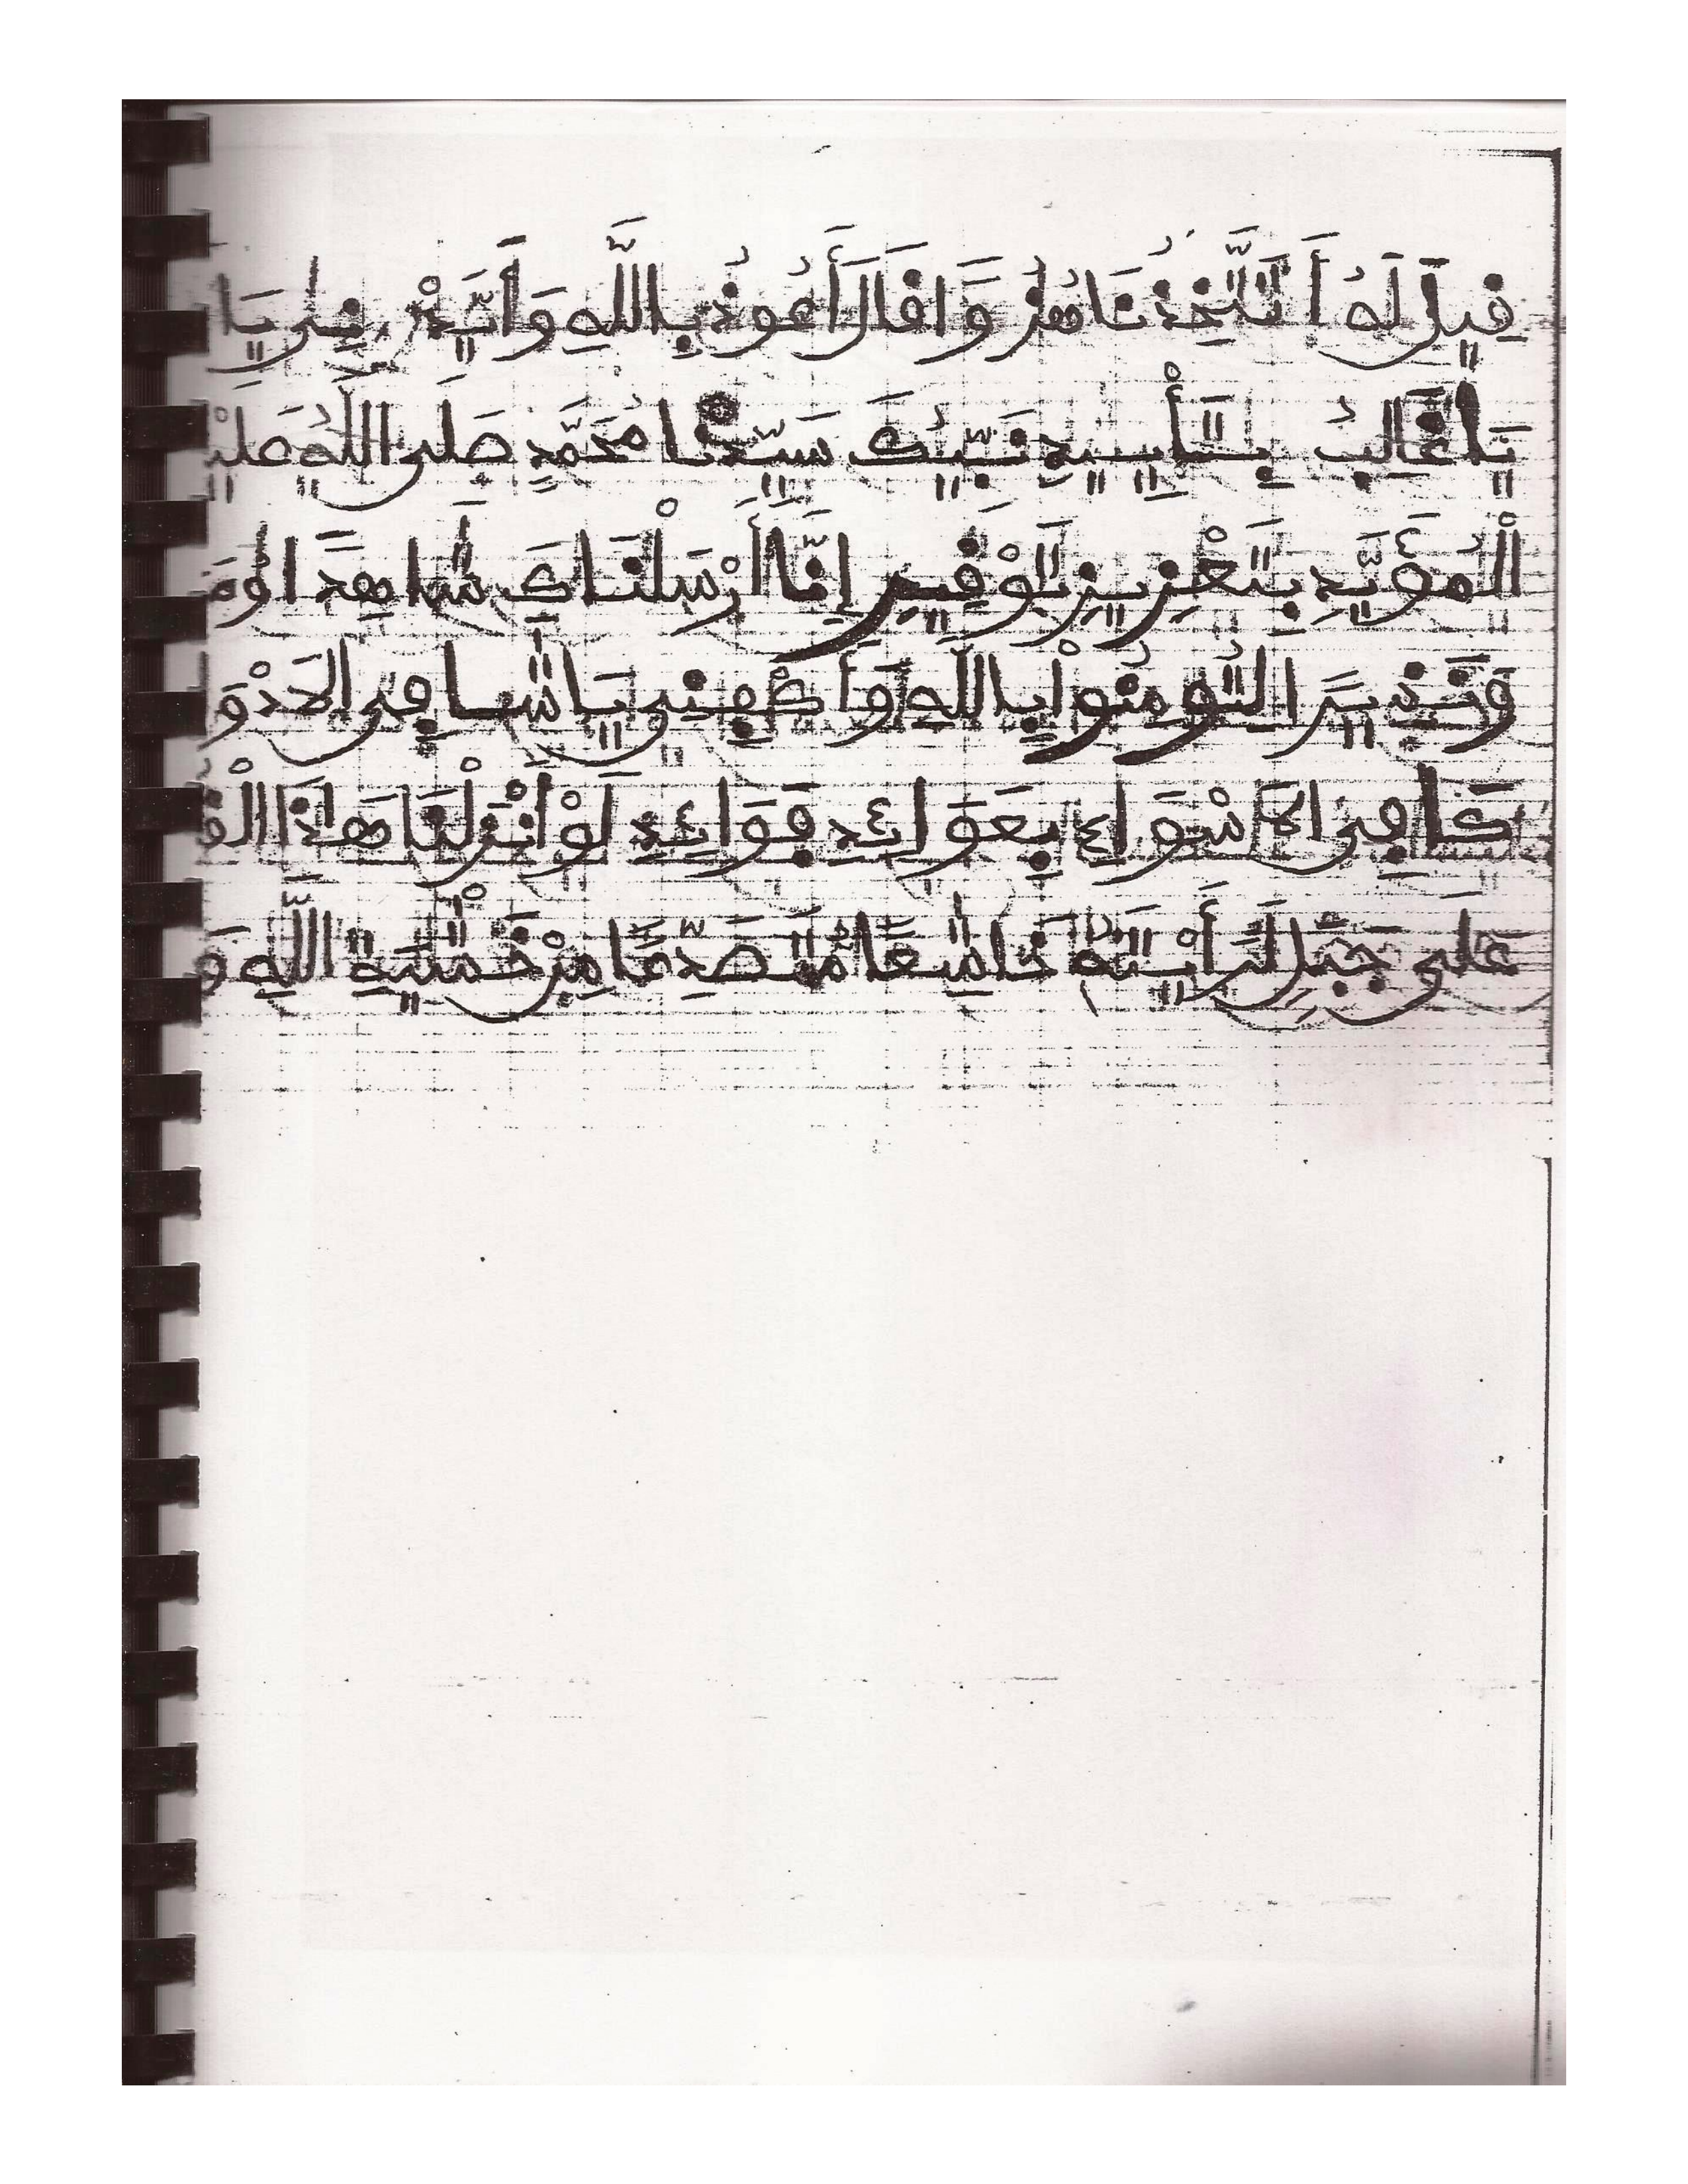 قِيلَ لَهُ أَتَتَّخِذُنَا هُزُوًا قَالَ أَعُوذُ بِاللَّهِ وَأَيِّدْنِي يَا
يَا غَالِبُ بِتَأْيِيدِ نَبِيِّكَ سَيِّدِنَا مُحَمَّدٍ صَلَّى اللَّهُ عَلَيْ
الْمُؤَيَّدِ بِتَعْزِيزِ تَوْقِيرِ إِنَّا أَرْسَلْنَاكَ شَاهِدًا وَمُ
وَنَذِيرًا لِتُومِنُوا بِاللَّهِ وَاكْفِنِي يَا شَافِيَ الَادْوَا
كَافِيَ الَاسْوَاءِ بِعَوَائِدِ فَوَائِدِ لَوْ أَنْزَلْنَا هَذَا الْقُ
عَلَى جَبَلٍ لَرَأَيْتَهُ خَاشِعًا مُتَصَدِّعًا مِنْ خَشْيَةِ اللَّهِ وَ